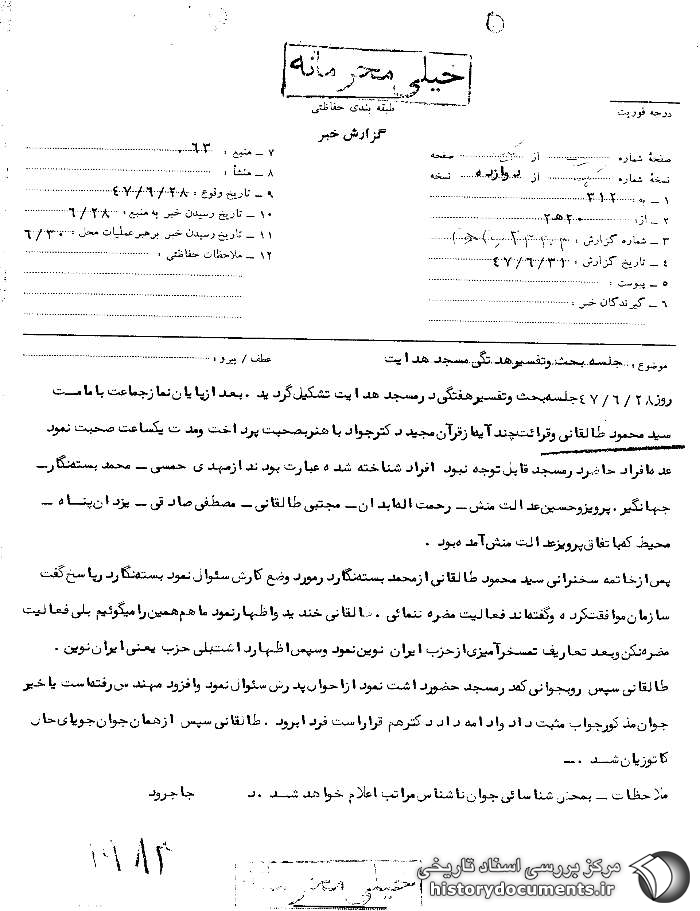 خیلی محرمانه
طبقه بندی حفاظتی
درجه فوریت
گزارش خبر
صفحهٔ شماره از صفحه
نسخهٔ شماره از دوازده نسخه
۱ ـ به : ۳۱۲
۲ ـ از : ۲۰ ه ۲
۳ ـ شماره گزارش :
۴ ـ تاریخ گزارش : ۴۷/۶/۳۱
۵ ـ پیوست :
۶ ـ گیرندگان خبر :
۷ ـ منبع : ۶۳۰
۸ ـ منشأ :
۹ ـ تاریخ وقوع : ۴۷/۶/۲۸
۱۰ ـ تاریخ رسیدن خبر به منبع : ۶/۲۸
۱۱ ـ تاریخ رسیدن خبر برهبر عملیات محل : ۶/۳۰
۱۲ ـ ملاحظات حفاظتی :
موضوع : جلسه بحث وتفسیر هدتگی مسجد هدایت عطف / پیرو :
روز ۴۷/۶/۲۸ جلسه بحث وتفسیر هفتگی در مسجد هدایت تشکیل گردید . بعد از پایان نماز جماعت با مامت
سید محمود طالقانی وقرائت چند آیه از قرآن مجید دکتر جواد با هنر بصحبت پرداخت ومدت یکساعت صحبت نمود
عده افراد حاضر در مسجد قابل توجه نبود افراد شناخته شده عبارت بودند از مهدی حمسی ـ محمد بسته‌نگار ـ
جهانگیر . پرویز وحسین عدالت منش ـ رحمت اله ابدان ـ مجتبی طالقانی ـ مصطفی صادقی ـ یزدان پناه ـ
محیط که با تفاق پرویز عدالت منش آمده بود .
پس از خاتمه سخنرانی سید محمود طالقانی از محمد بسته‌نگار در مورد وضع کارش سئوال نمود بسته‌نگار در پاسخ گفت
سازمان موافقت کرده وگفته‌اند فعالیت مضره ننمائی . طالقانی خندید واظهار نمود ما هم همین را میگوئیم بلی فعالیت
مضره نکن وبعد تعاریف تمسخر آمیزی از حزب ایران نوین نمود وسپس اظهار داشت بلی حزب یعنی ایران نوین .
طالقانی سپس رو بجوانی که در مسجد حضور داشت نمود از احوال پدرش سئوال نمود وافزود مهندس رفته است یا خیر
جوان مذکور جواب مثبت داد وادامه داد دکتر هم قرار است فردا برود . طالقانی سپس از همان جوان جویای حال
کاتوزیان شد . ـ
ملاحظات ـ بمحض شناسائی جوان ناشناس مراتب اعلام خواهد شد . د جاجرود
۱۹۸۲
خیلی محرمانه
مرکز بررسی اسناد تاریخی
historydocuments.ir